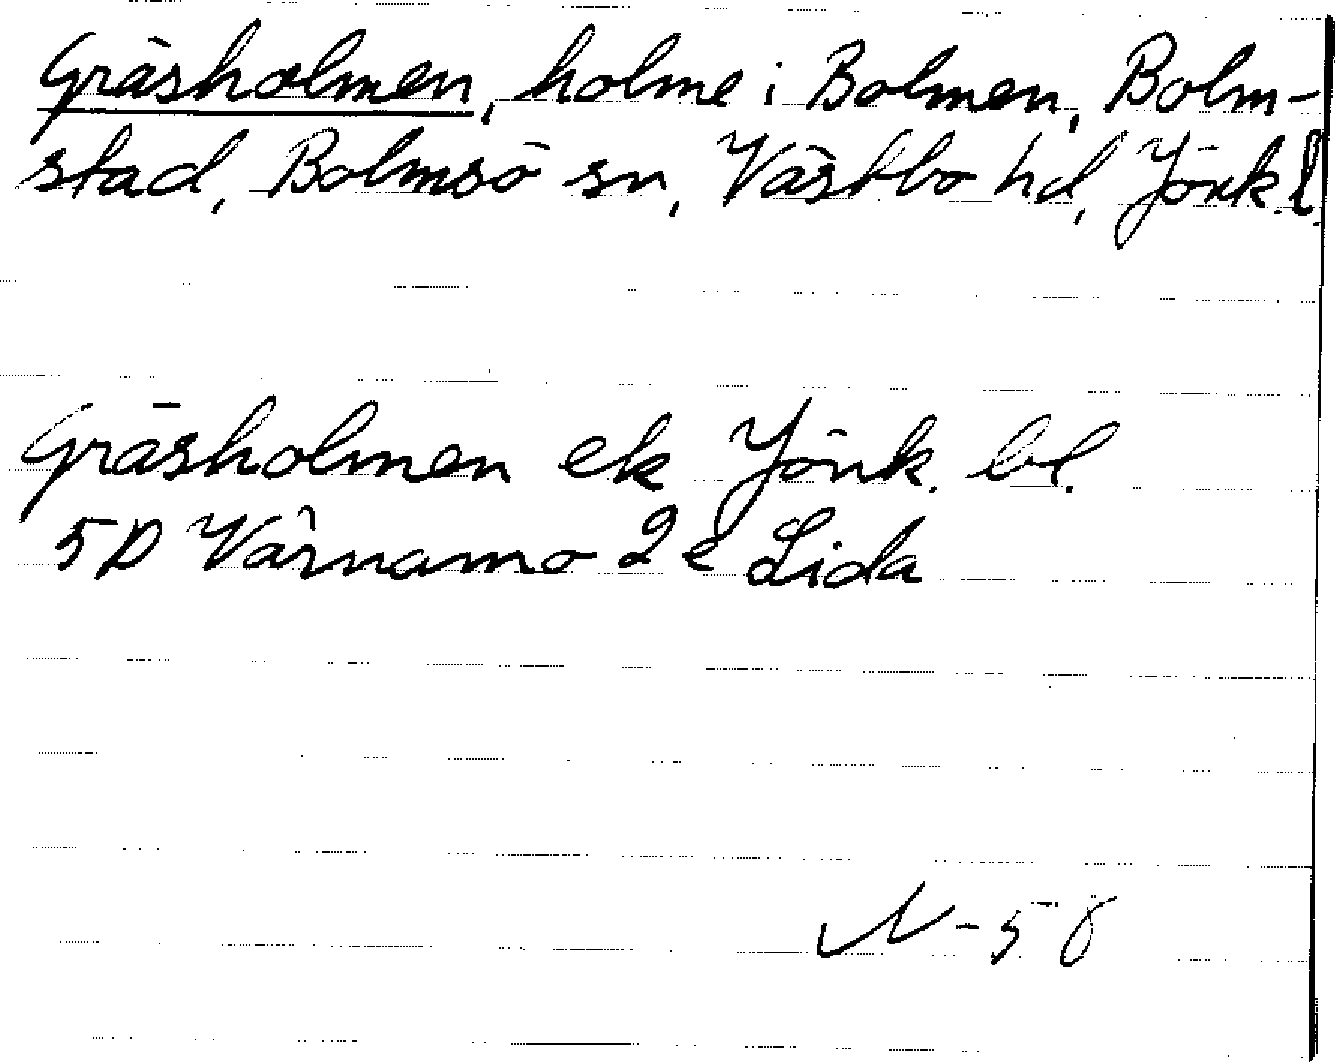 Gräsholmen, holme i Bolmen, Bolm-
stad, Bolmsö sn, Västbo hd, Jönk. l.
Gräsholmen ek Jönk. bl.
5D Värnamo 2e Lida
N-58